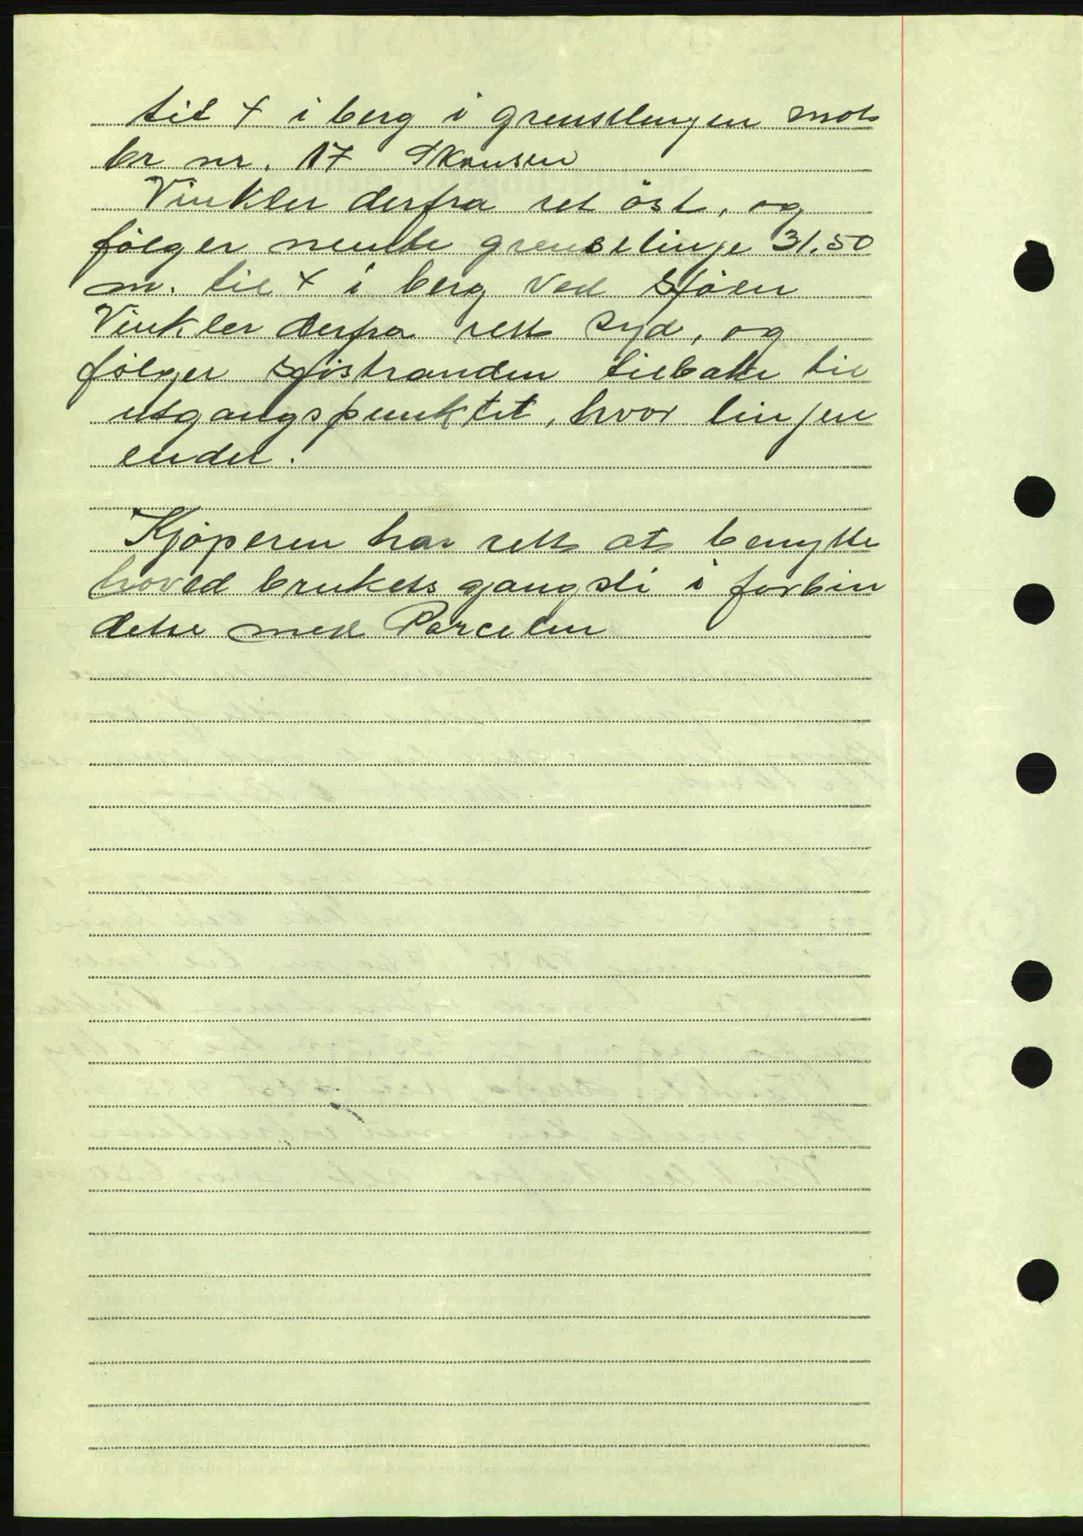 til + i berg i grenselinjen mot
br nr. 17 Skansen
Vinkler derfra ret öst, og
fölger nemte grenselinje 31.50
m. til + i berg ved Sjöen
Vinkler derfra rett Syd, og
fölger sjöstranden tilbake til
utgangspunktet, hvor linjen
ender.
Kjöperen har rett at benytte
hoved brukets gangsti i forbin
delse med Parcelen